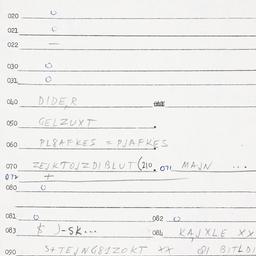 020 0
021 0
022 —
030 0
031 0
040 DIDE,R
050 GELZUXT
060 PL8AFKES = PJAFKES
070 ZEJKTOJZDIBLUT (210. 071 MAJN ...
072 +
080 0
081 0 082 0
083 $ )-SK... 084 KAJXLE XX
090 S+TEJNG81ZOKT XX 091 BITLDI